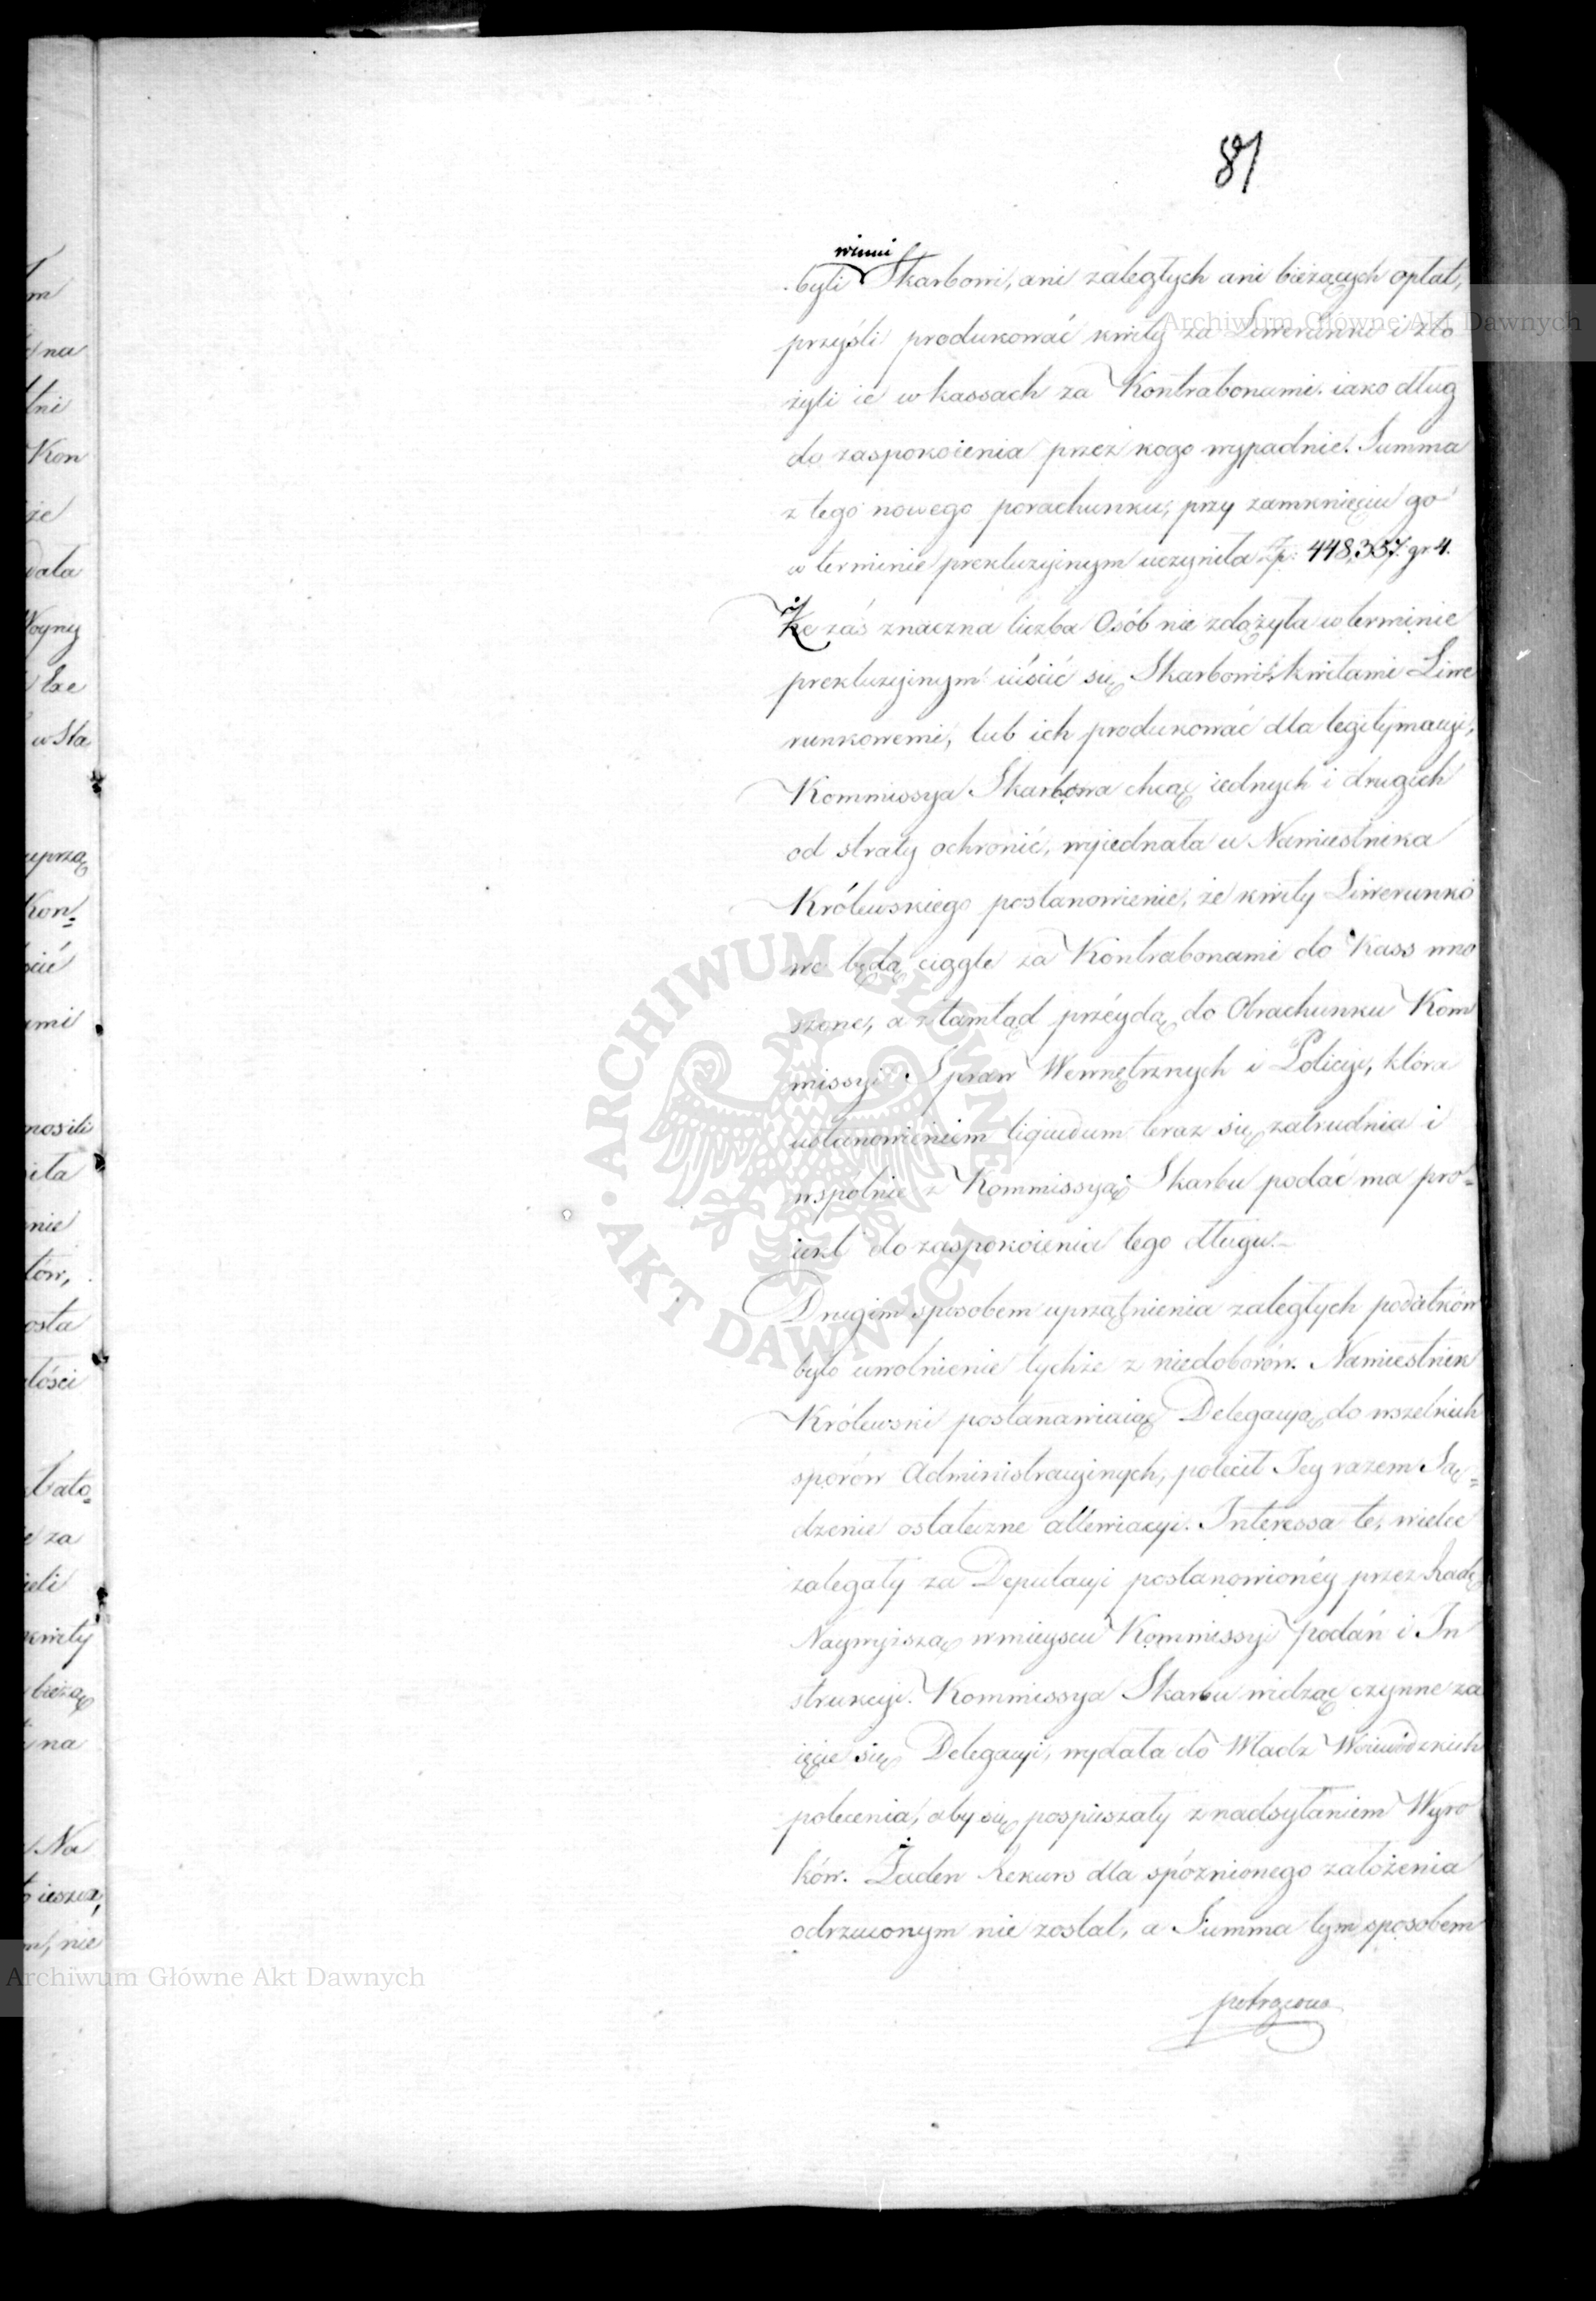 81
winni
byli Skarbowi, ani zaległych ani bieżących opłat,
przyśli produkować kwity za Liwerunki i zło
żyli ie w kassach za Kontrabonami. iako dług
do zaspokoienia przez kogo wypadnie. Summa
z tego nowego porachunku, przy zamknięciu go
w terminie prekluzyinym uczyniła Zp: 448,337. gr 4.
Że zaś znaczna liczba Osób nie zdążyła w terminie
prekluzyinym uiścić się Skarbowi kwitami Liwe
runkowemi, lub ich produkować dla legitymacyi,
Kommissya Skarbowa chcąc iednych i drugich
od straty ochronić, wyiednała u Namiestnika
Królewskiego postanowienie, że kwity Liwerunko
we będą ciągle za Kontrabonami do Kass wno
szone, a ztamtąd przéydą do Obrachunku Kom
missyi Spraw Wewnętrznych i Policyi, która
ustanowieniem liquidum teraz się zatrudnia i
wspólnie z Kommissyą Skarbu podać ma pro=
iekt do zaspokoienia tego długu.
Drugim sposobem uprzątnienia zaległych podatków
było uwolnienie tychże z niedoborów. Namiestnik
Królewski postanawiaiąc Delegacyą do wszelkich
sporów Administracyinych, polecił Jey razem Są=
dzenie ostateczne allewiacyi. Interessa te, wiele
zalegały za Deputacyi postanowionéy przez Radę
Naywyższą w mieyscu Kommissyi podań i In
strukcyi. Kommissya Skarbu widząc czynne za
ięcie się Delegacyi, wydała do Władz Woiewódzkich
polecenia, aby się pospieszały z nadsyłaniem Wyro
ków. Żaden Rekurs dla spóźnionego założenia
odrzuconym nie został, a Summa tym sposobem
potrącona
m
na
tni
Kon
że
dała
Woyny
w Sta
uprzą
Kon=
ami
nosili
iła
nie
tów,
osta
łości
e za
ieli
kwity
bieżą
na
Na
ieszcze,
m, nie
Archiwum Główne Akt Dawnych
ARCHIWUM GŁÓWNE · AKT DAWNYCH ·
Archiwum Główne Akt Dawnych